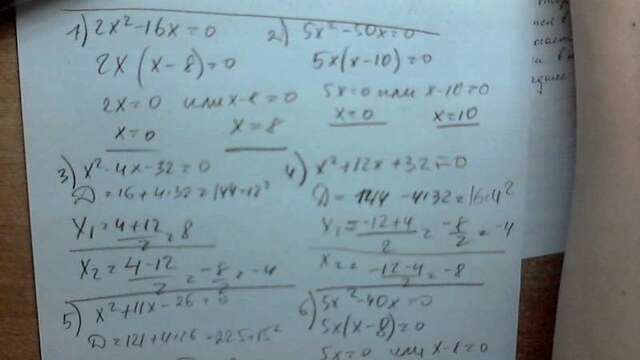 1) 2x² - 16x = 0
2x(x - 8) = 0
2x = 0 или x - 8 = 0
x = 0 x = 8
2) 5x² - 50x = 0
5x(x - 10) = 0
5x = 0 или x - 10 = 0
x = 0 x = 10
3) x² - 4x - 32 = 0
D = 16 + 4·32 = 144 = 12²
x₁ = (4 + 12)/2 = 8
x₂ = (4 - 12)/2 = -8/2 = -4
4) x² + 12x + 32 = 0
D = 144 - 4·32 = 16 = 4²
x₁ = (-12 + 4)/2 = -8/2 = -4
x₂ = (-12 - 4)/2 = -8
5) x² + 11x - 26 = 0
D = 121 + 4·26 = 225 = 15²
6) 5x² - 40x = 0
5x(x - 8) = 0
5x = 0 или x - 8 = 0